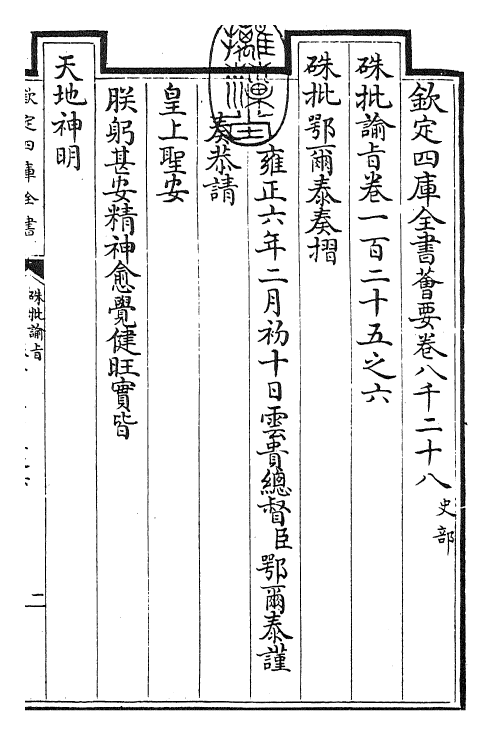 欽定四庫全書薈要卷八千二十八 史部
硃批諭旨卷一百二十五之六
硃批鄂爾泰奏摺
雍正六年二月初十日雲貴總督臣鄂爾泰謹
奏恭請
皇上聖安
朕躬甚安精神愈覺健旺實皆
天地神明
欽定四庫全書
硃批諭旨